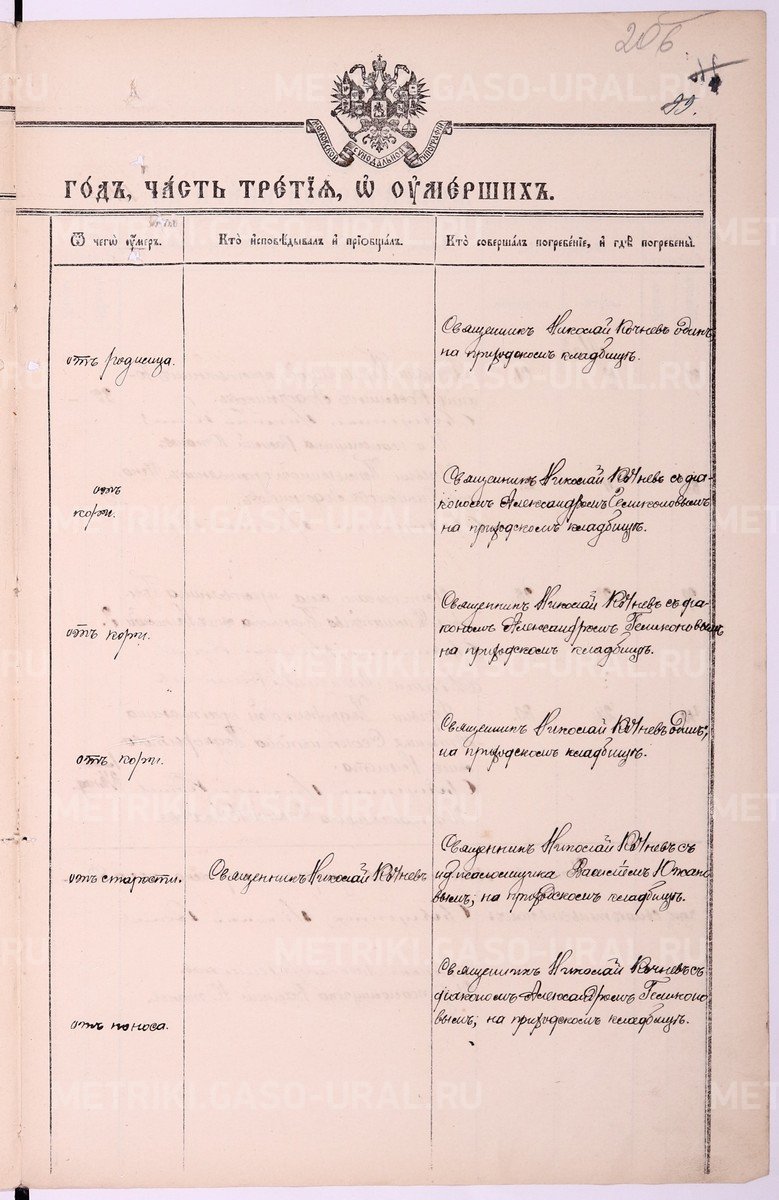 206
99.
МОСКОВСКОЙ СѴНОДАЛЬНОЙ ТИПОГРАФІИ
го́дъ, ча́сть тре́тїѧ, ѡ҆ ᲂу҆ме́ршихъ.
Ѿ чегѡ̀ ᲂу҆́меръ.
Кто̀ и҆сповѣ́дывалъ и҆ прїѡбща́лъ.
Кто̀ соверша́лъ погребе́нїе, и҆ гдѣ̀ погребены̀.
отъ родимца.
Священникъ Николай Кочневъ одинъ,
на приходскомъ кладбищѣ.
отъ
кори.
Священникъ Николай Кочневъ съ діа-
кономъ Александромъ Геликоновымъ
на приходскомъ кладбищѣ.
отъ кори.
Священникъ Николай Кочневъ съ діа-
кономъ Александромъ Геликоновымъ
на приходскомъ кладбищѣ.
отъ кори.
Священникъ Николай Кочневъ одинъ,
на приходскомъ кладбищѣ.
отъ старости.
Священникъ Николай Кочневъ
Священникъ Николай Кочневъ съ
и д псаломщика Василіемъ
вымъ, на приходскомъ кладбищѣ.
отъ поноса.
Священникъ Николай Кочневъ съ
діакономъ Александромъ Геликоно
вымъ, на приходскомъ кладбищѣ.
METRIKI.GASO-URAL.RU